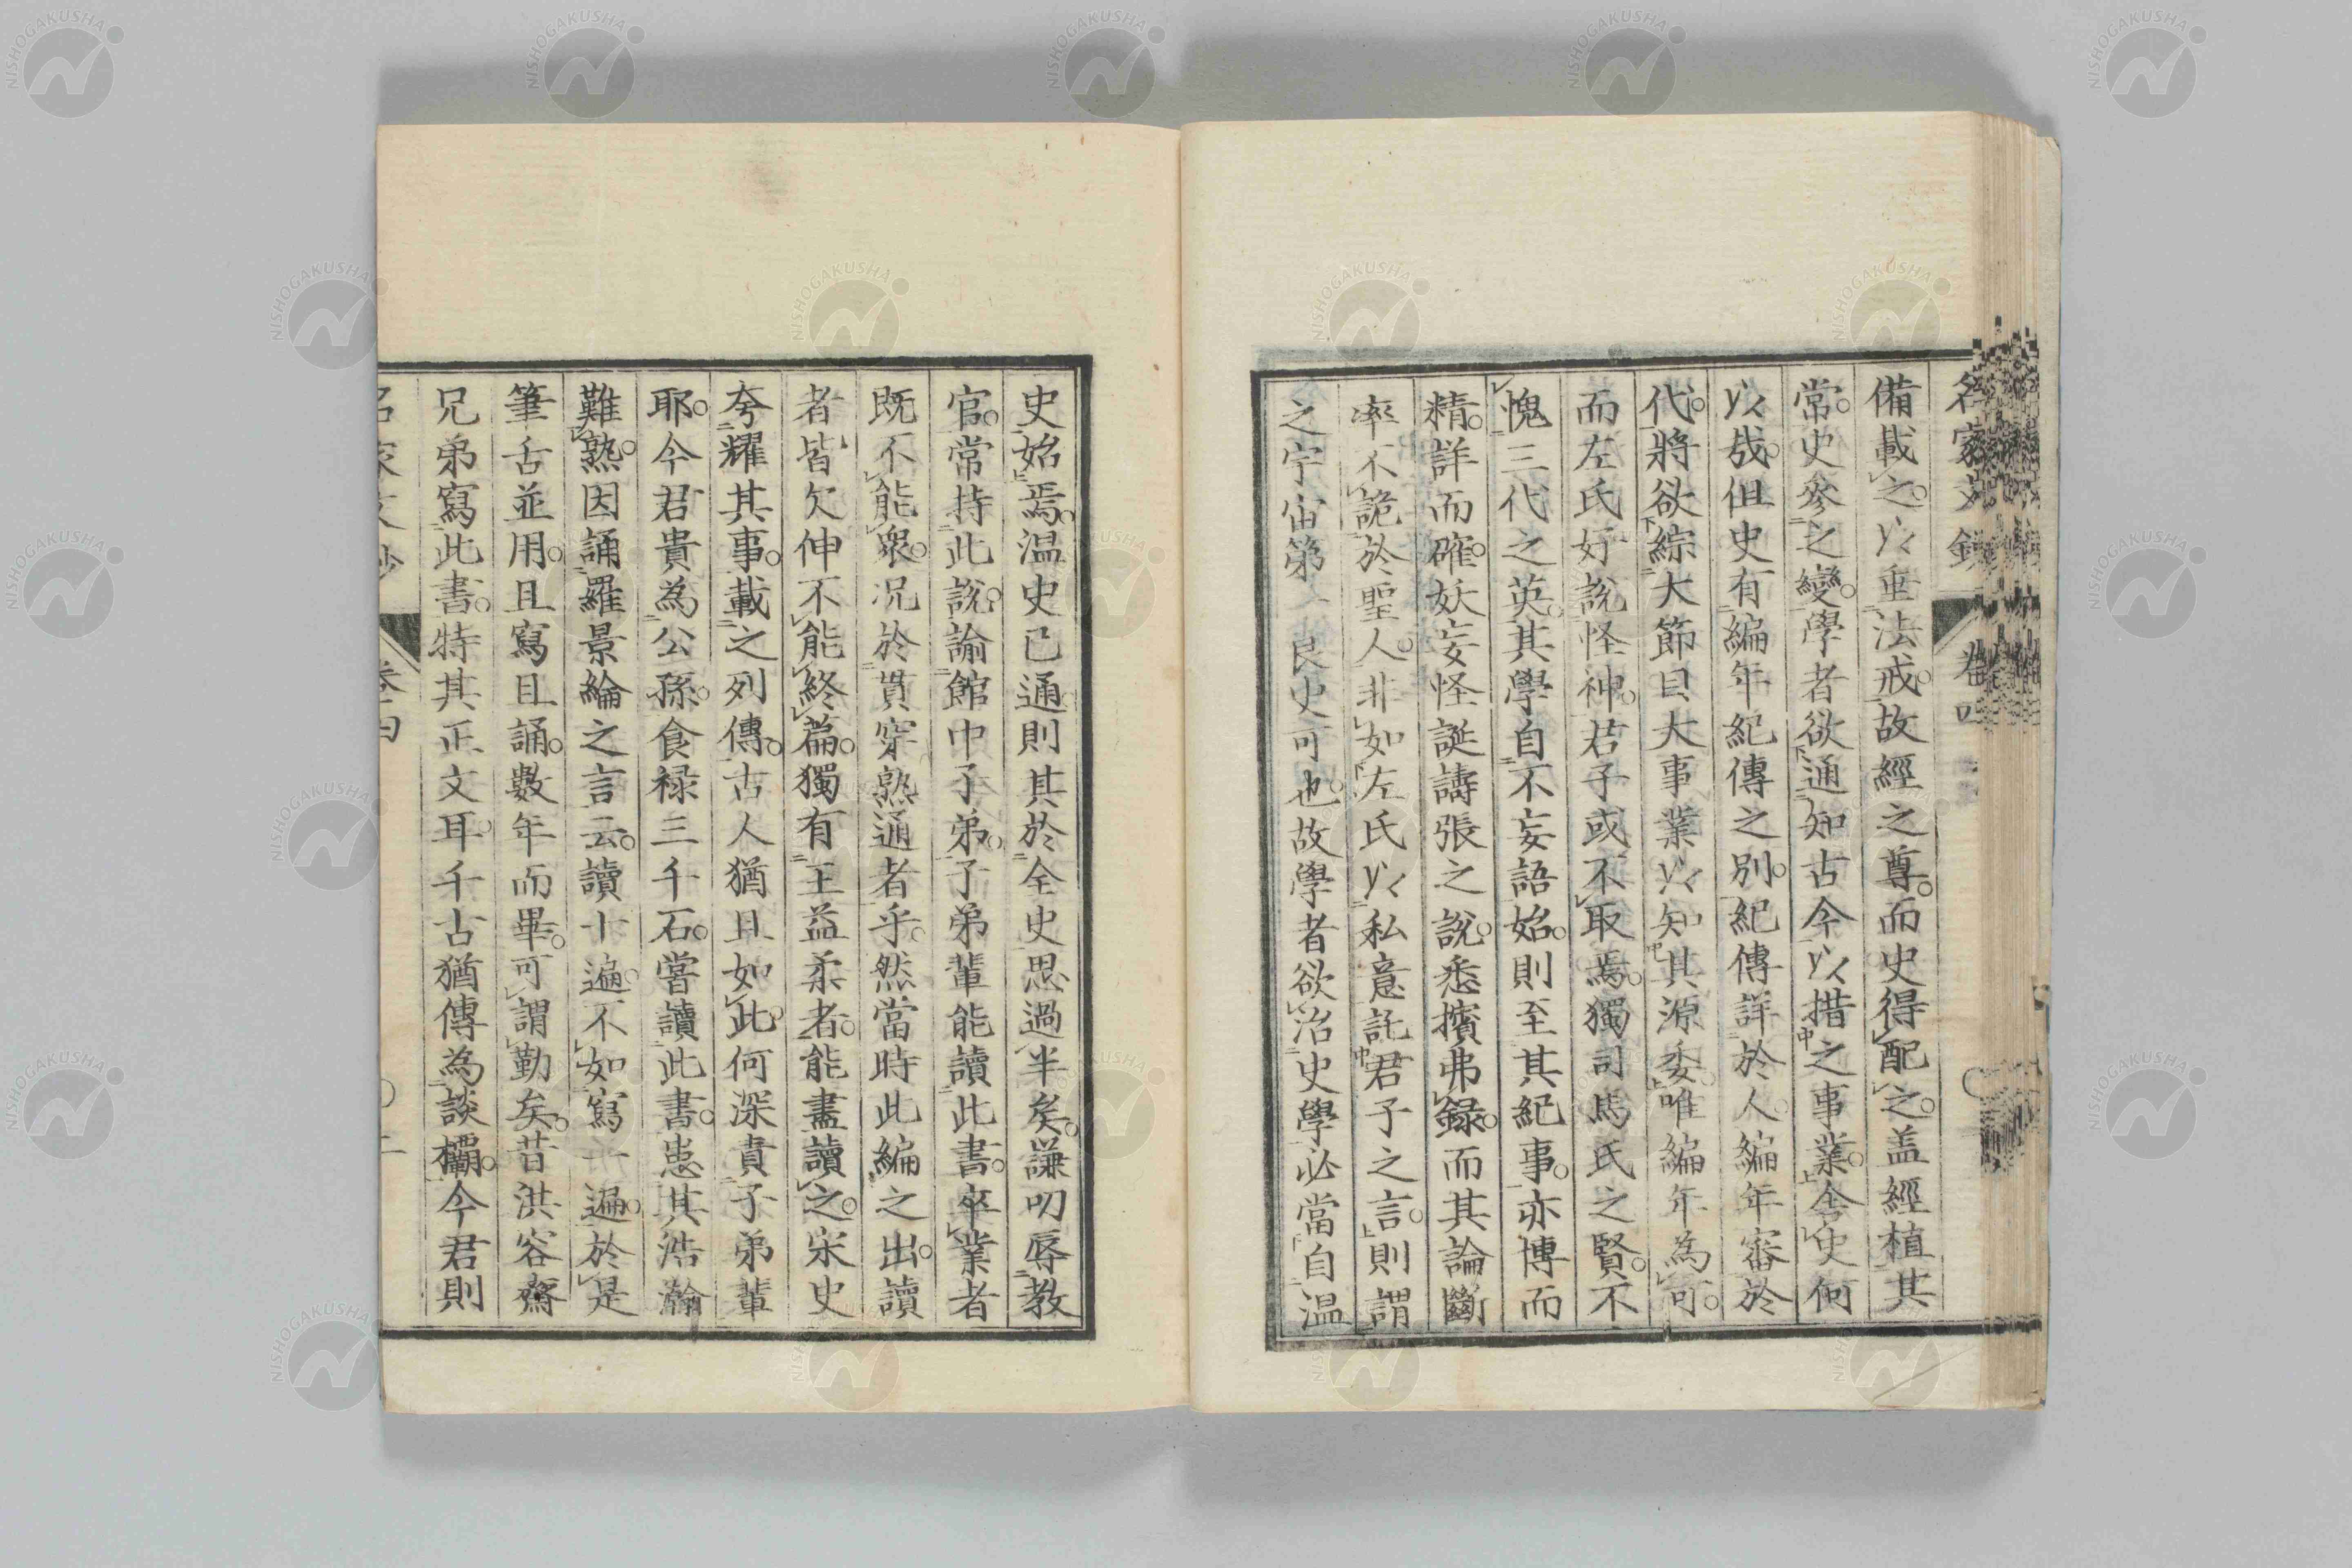 名家文鈔 卷四
備載之。以垂法戒。故經之尊。而史得配之。盖經植其
常。史參之變。學者欲通知古今以措之事業。舍史何
以哉。但史有編年紀傳之別。紀傳詳於人。編年審於
代。將欲綜大節目大事業以知其源委。唯編年為可。
而左氏好說怪神。君子或不取焉。獨司馬氏之賢。不
愧三代之英。其學自不妄語始。則至其紀事。亦博而
精。詳而確。妖妄怪誕譸張之說。悉擯弗録。而其論斷
率不詭於聖人。非如左氏以私意託君子之言。則謂
之宇宙第一良史可也。故學者欲治史學必當自温
史始焉。温史已通則其於全史思過半矣。謙叨辱教
官。常持此說。諭館中子弟。子弟輩能讀此書。卒業者
既不能衆。況於貫穿熟通者乎。然當時此編之出。讀
者皆欠伸不能終篇。獨有王益柔者。能盡讀之。宋史
夸耀其事。載之列傳。古人猶且如此。何深責子弟輩
耶。今君貴為公孫。食禄三千石。嘗讀此書。患其浩瀚
難熟。因誦羅景綸之言云。讀十遍。不如寫一遍。於是
筆舌並用。且寫且誦。數年而畢。可謂勤矣。昔洪容齋
兄弟寫此書。特其正文耳。千古猶傳為談欛。今君則
名家文鈔 卷四 〇二
NISHOGAKUSHA